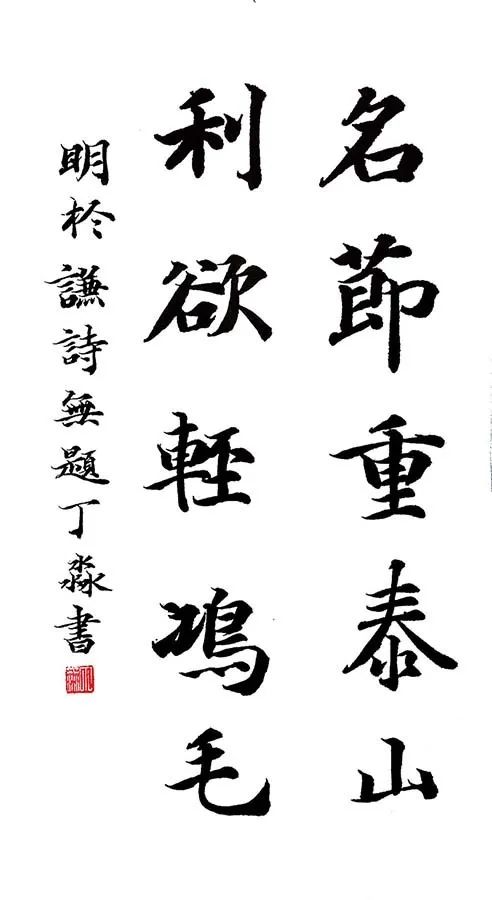 名節重泰山
利欲輕鴻毛
明於謙詩無題丁淼書